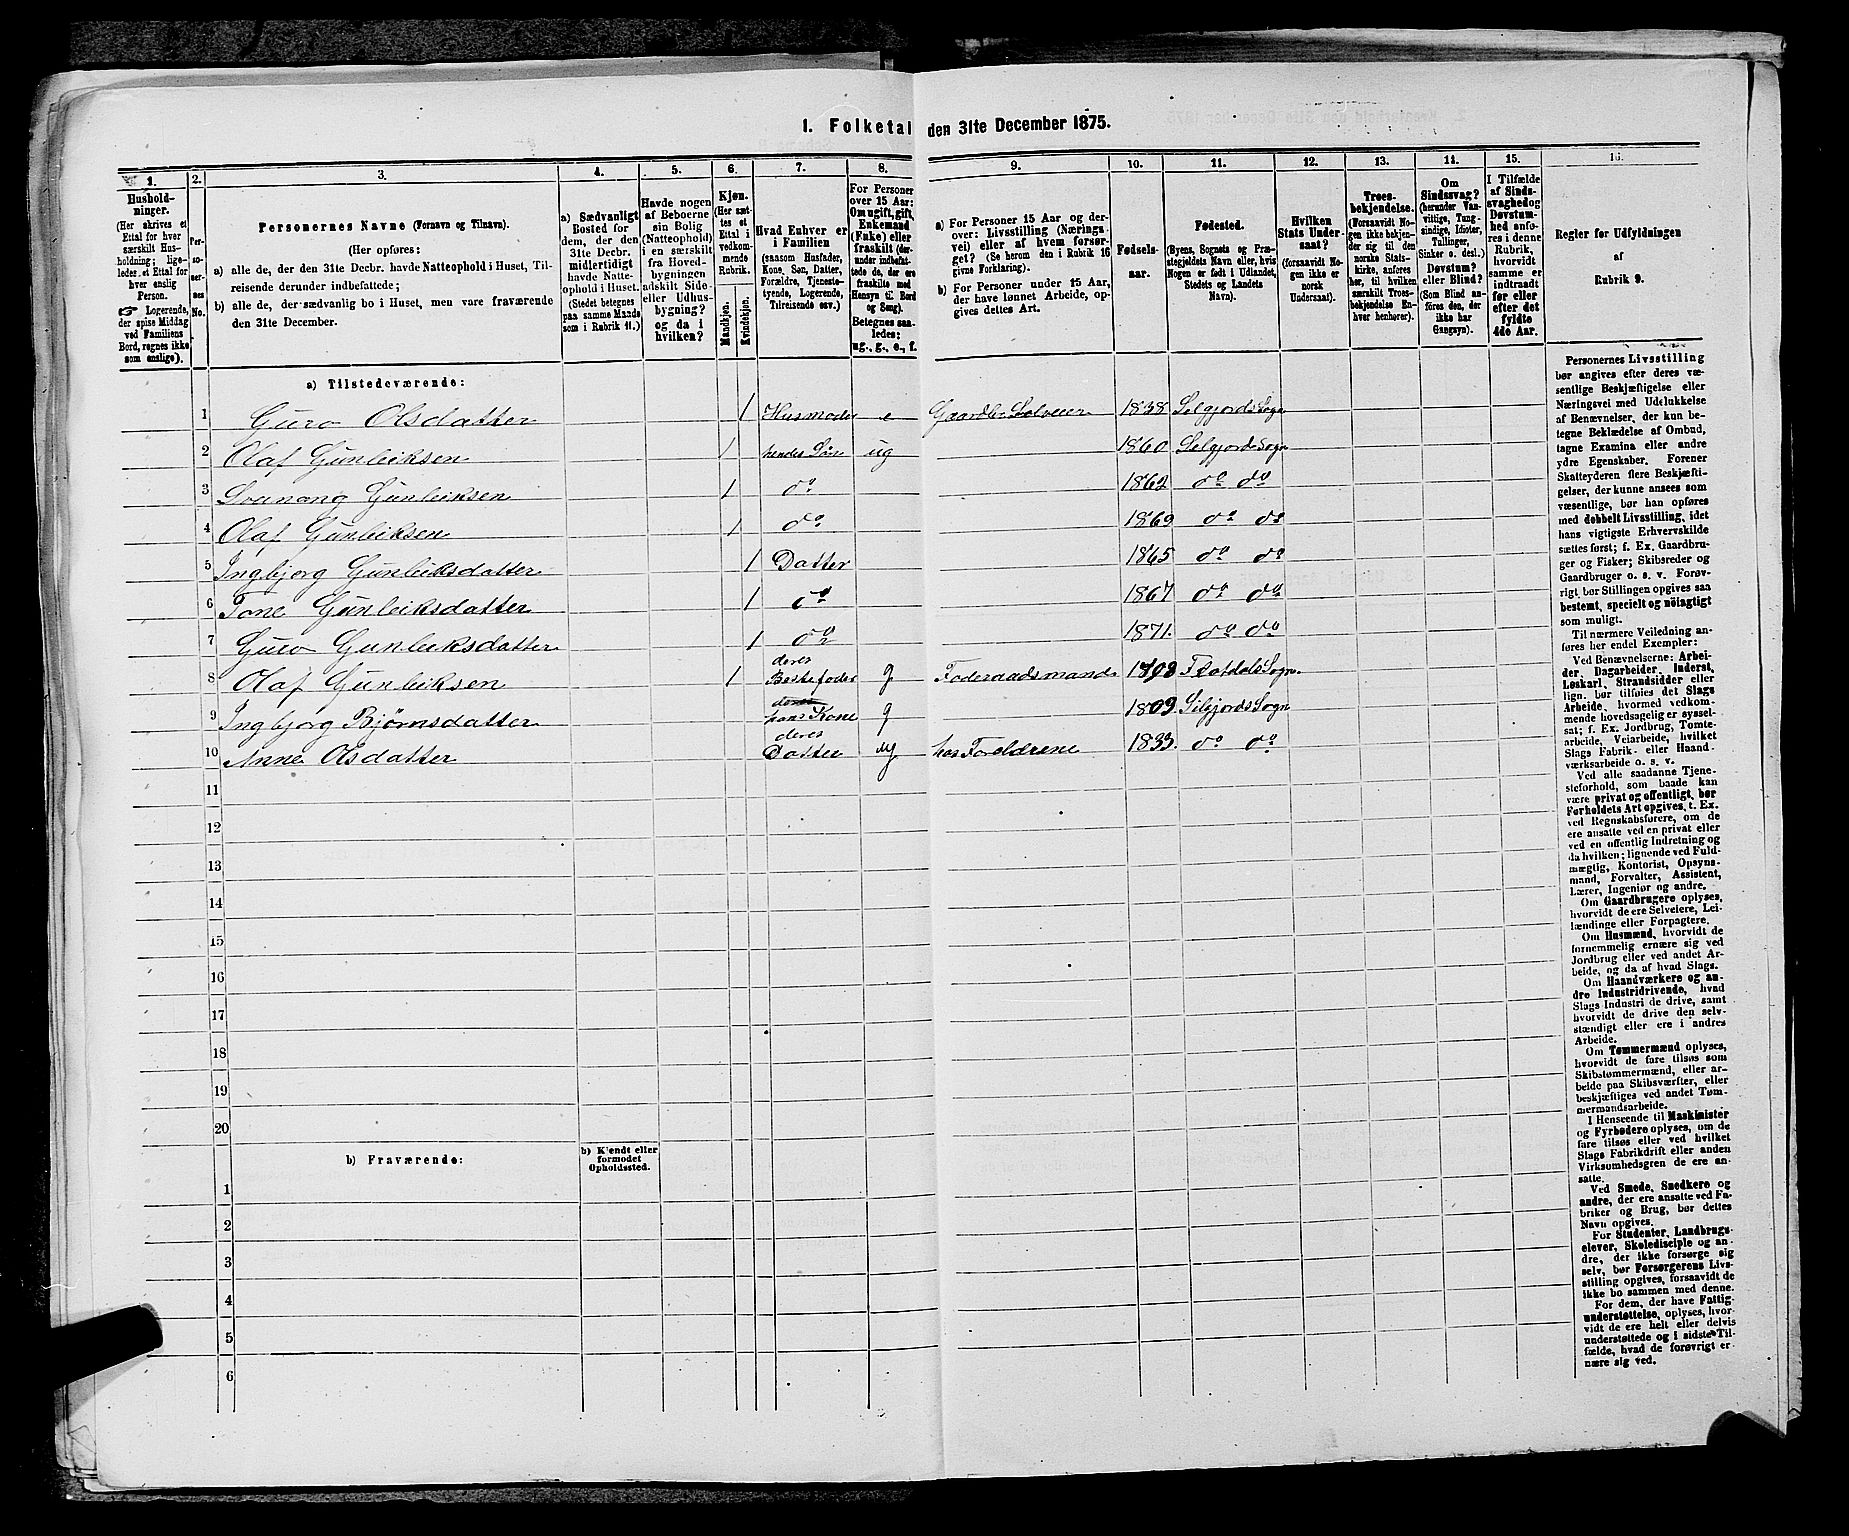 1. Folketal den 31te December 1875.
1. 2. 3. 4. 5. 6. 7. 8. 9. 10. 11. 12. 13. 14. 15. 16.
Hushold-
ninger.
(Her skrives et
Ettal for hver
særskilt Hus-
holdning; lige-
ledes et Ettal for
hver enslig
Person.
☞ Logerende,
der spise Middag
ved Familiens
Bord, regnes ikke
som enslige).
Per-
so-
ner-
nes
No.
Personernes Navne (Fornavn og Tilnavn).
(Her opføres:
a) alle de, der den 31te Decbr. havde Natteophold i Huset, Til-
reisende derunder indbefattede;
b) alle de, der sædvanlig bo i Huset, men vare fraværende
den 31te December.
a) Sædvanligt
Bosted for
dem, der den
31te Decbr.
midlertidigt
havde Natte-
ophold i Huset.
(Stedet betegnes
paa samme Maade
som i Rubrik 11.)
Havde nogen
af Beboerne
sin Bolig
(Natteophold)
i en særskilt
fra Hoved-
bygningen
adskilt Side-
eller Udhus-
bygning?
og da i
hvilken?
Kjøn.
(Her sæt-
tes et
Ettal i
vedkom-
mende
Rubrik.
Mandkjøn.
Kvindekjøn.
Hvad Enhver er
i Familien
(saasom Husfader,
Kone, Søn, Datter,
Forældre, Tjeneste-
tyende, Logerende,
Tilreisende osv.)
For Personer
over 15 Aar:
Om ugift, gift,
Enkemand
(Enke) eller
fraskilt (der-
under indbefat-
tede de, der ere
fraskilte med
Hensyn til Bord
og Seng).
Betegnes saa-
ledes:
ug., g., e., f.
a) For Personer 15 Aar og der-
over: Livsstilling (Nærings-
vei) eller af hvem forsør-
get? (Se herom den i Rubrik 16
givne Forklaring).
b) For Personer under 15 Aar,
der have lønnet Arbeide, op-
gives dettes Art.
Fødsels-
aar.
Fødested.
(Byens, Sognets og Præ-
stegjeldets Navn eller, hvis
Nogen er født i Udlandet,
Stedets og Landets
Navn).
Hvilken
Stats Under-
saat?
(forsaavidt No-
gen ikke er
norsk
Undersaat).
Troes-
bekjendelse.
(Forsaavidt No-
gen ikke bekjen-
der sig til den
norske Stats-
kirke, anføres
her, til hvilken
særskilt Troes-
bekjendelse En-
hver henhører).
Om
Sindssvag?
(herunder Van-
vittige, Tung-
sindige, Idioter,
Tullinger,
Sinker o. desl.)
Døvstum?
eller Blind?
(Som Blind an-
føres den, der
ikke har
Gangsyn).
I Tilfælde
af Sinds-
svaghed og
Døvstum-
hed anfø-
res i denne
Rubrik,
hvorvidt
samme er
indtraadt
før eller
efter det
fyldte
4de Aar.
Regler for Udfyldningen
af
Rubrik 9.
a) Tilstedeværende:
1 Guro Olsdatter 1 Husmoder e Gaardbr. Selveier 1838 Selgjords Sogn
2 Olaf Gunleiksen 1 hendes Søn ug 1860 Selgjords Sogn
3 Gunleiksen 1 do 1862 do do
4 Olaf Gunleiksen 1 do 1869 do do
5 Ingbjorg Gunleiksdatter 1 Datter 1865 do do
6 Tone Gunleiksdatter 1 do 1867 do do
7 Guro Gunleiksdatter 1 do 1871. do do
8 Olaf Gunleiksen 1 deres Bestefader g Føderaadsmand Flatdals Sogn
9 Ingbjørg Bjørnsdatter hans Kone g 1809 Selgjords Sogn
10 Anne Olsdatter deres Datter ug hos Forældrene 1833. do do
11
12
13
14
15
16
17
18
19
20
b) Fraværende:
b) Kjendt eller
formodet
Opholdssted.
1
2
3
4
5
6
Personernes Livsstilling
bør angives efter deres væ-
sentlige Beskjæftigelse eller
Næringsvei med Udelukkelse
af Benævnelser, der kun be-
tegne Beklædelse af Ombud,
tagne Examina eller andre
ydre Egenskaber. Forener
Skatteyderen flere Beskjæfti-
gelser, der kunne ansees som
væsentlige, bør han opføres
med dobbelt Livsstilling, idet
hans vigtigste Erhvervskilde
sættes først; f. Ex. Gaardbru-
ger og Fisker; Skibsreder og
Gaardbruger o. s. v. Forøv-
rigt bør Stillingen opgives saa
bestemt, specielt og nöiagtigt
som muligt.
Til nærmere Veiledning an-
føres her endel Exempler:
Ved Benævnelserne: Arbei-
der, Dagarbeider, Inderst,
Løskarl, Strandsidder eller
lign. bør tilføies det Slags
Arbeide, hvormed vedkom-
mende hovedsagelig er syssel-
sat; f. Ex. Jordbrug, Tomte-
arbeide, Veiarbeide, hvilket
Slags Fabrik- eller Haand-
værksarbeide o. s. v.
Ved alle saadanne Tjene-
steforhold, som baade kan
være privat og offentligt, bør
Forholdets Art opgives, t. Ex.
ved Regnskabsførere, om de
ere ansatte ved en privat eller
ved en offentlig Indretning og
da hvilken; lignende ved Fuld-
mægtig, Kontorist, Opsyns-
mand, Forvalter, Assistent,
Lærer, Ingeniør og andre.
Om Gaardbrugere oplyses,
hvorvidt de ere Selveiere, Lei-
lændinge eller Forpagtere.
Om Husmænd, hvorvidt de
fornemmelig ernære sig ved
Jordbrug eller ved andet Ar-
beide, og da af hvad Slags.
Om Haandværkere og an-
dre Industridrivende, hvad
Slags Industri de drive, samt
hvorvidt de drive den selv-
stændigt eller ere i andres
Arbeide.
Om Tømmermænd oplyses,
hvorvidt de fare tilsøs som
Skibstømmermænd, eller ar-
beide paa Skibsværfter, eller
beskjæftiges ved andet Tøm-
mermandsarbeide.
I Henseende til Maskinister
og Fyrbødere oplyses, om de
fare tilsøs eller ved hvilket
Slags Fabrikdrift eller anden
Virksomhedsgren de ere an-
satte.
Ved Smede, Snedkere og
andre, der ere ansatte ved Fa-
briker og Brug, bør dettes
Navn opgives.
For Studenter, Landbrugs-
elever, Skoledisciple og an-
dre, der ikke forsørge sig
selv, bør Forsørgerens Livs-
stilling opgives, forsaavidt de
ikke bo sammen med denne.
For dem, der have Fattig-
understøttelse, oplyses, hvor-
vidt de ere helt eller delvis
understøttede og i sidste Til-
fælde, hvad de forøvrigt er-
nære sig ved.